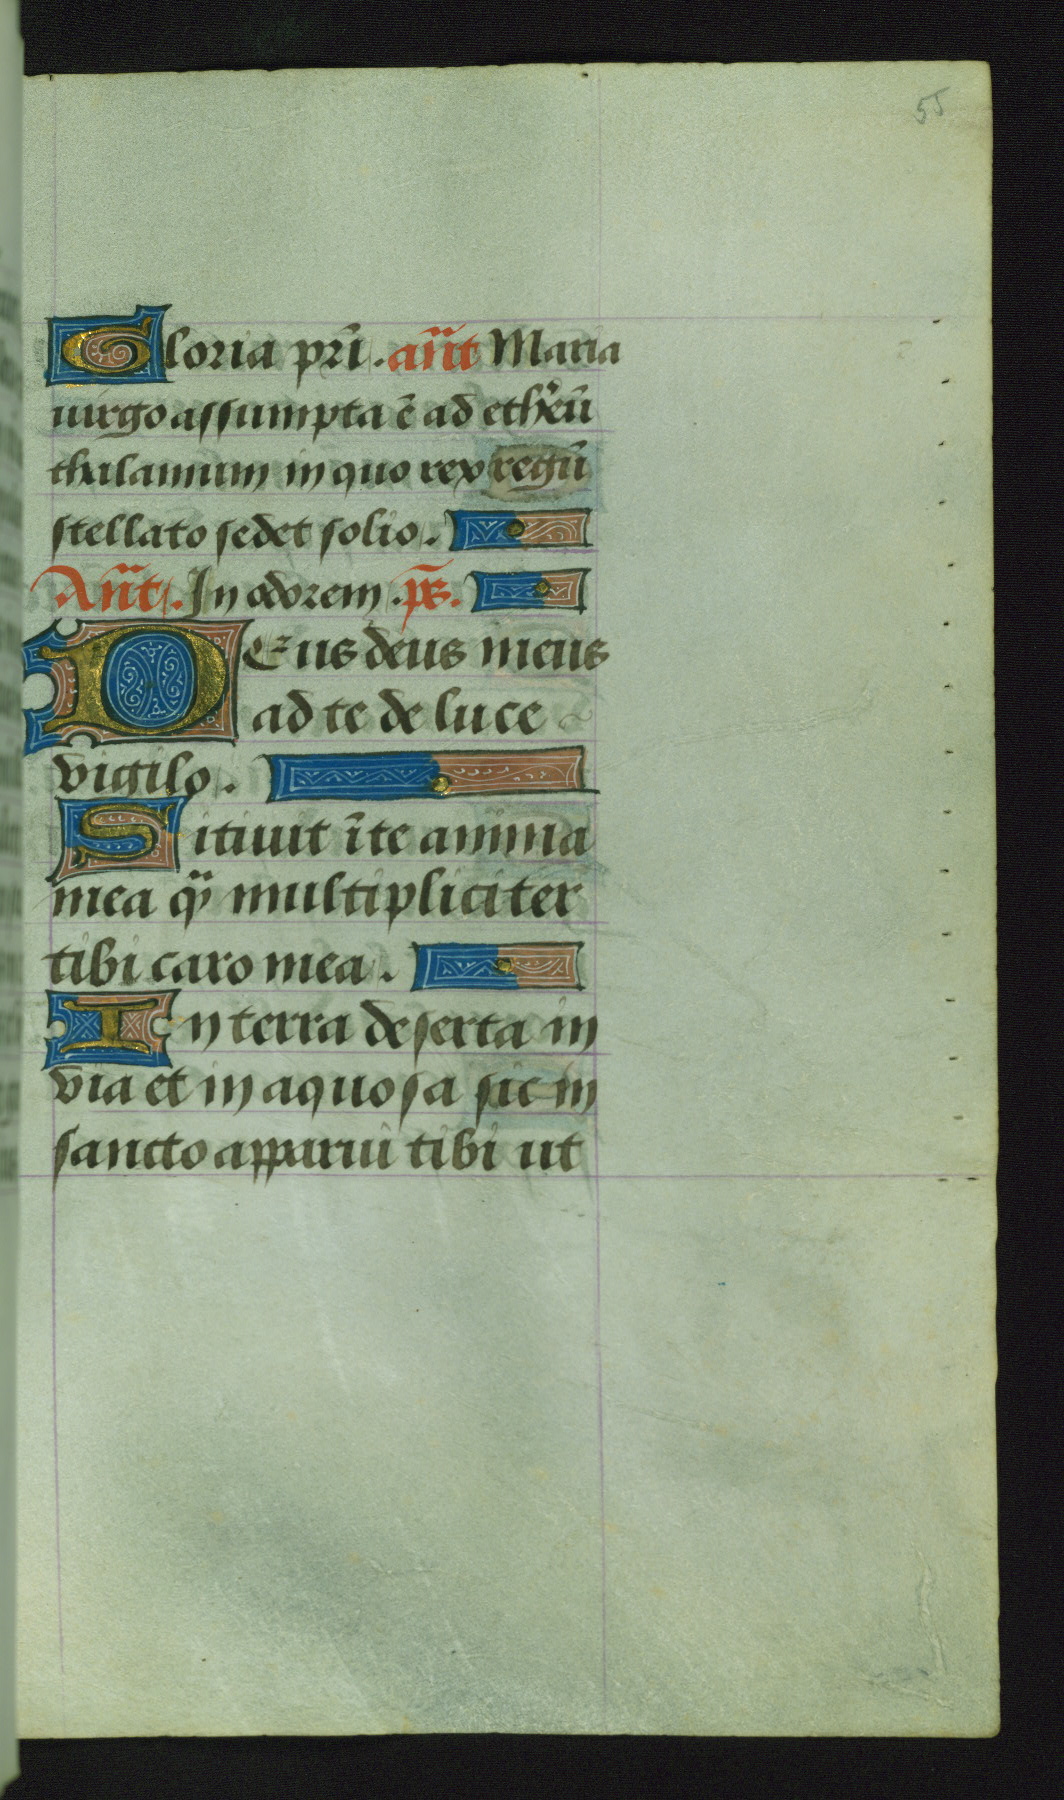 55
Gloria pr̄i. añt Maria
uirgo assumpta ē ad ethẽū
thalamum in quo rex regū
stellato sedet solio.
Añt. In odorem. p̄s.
DEus deus meus
ad te de luce
vigilo.
Sitiuit ī te anima
mea q̃ multipliciter
tibi caro mea.
In terra deserta in
via et in aquosa sic in
sancto apparui tibi ut